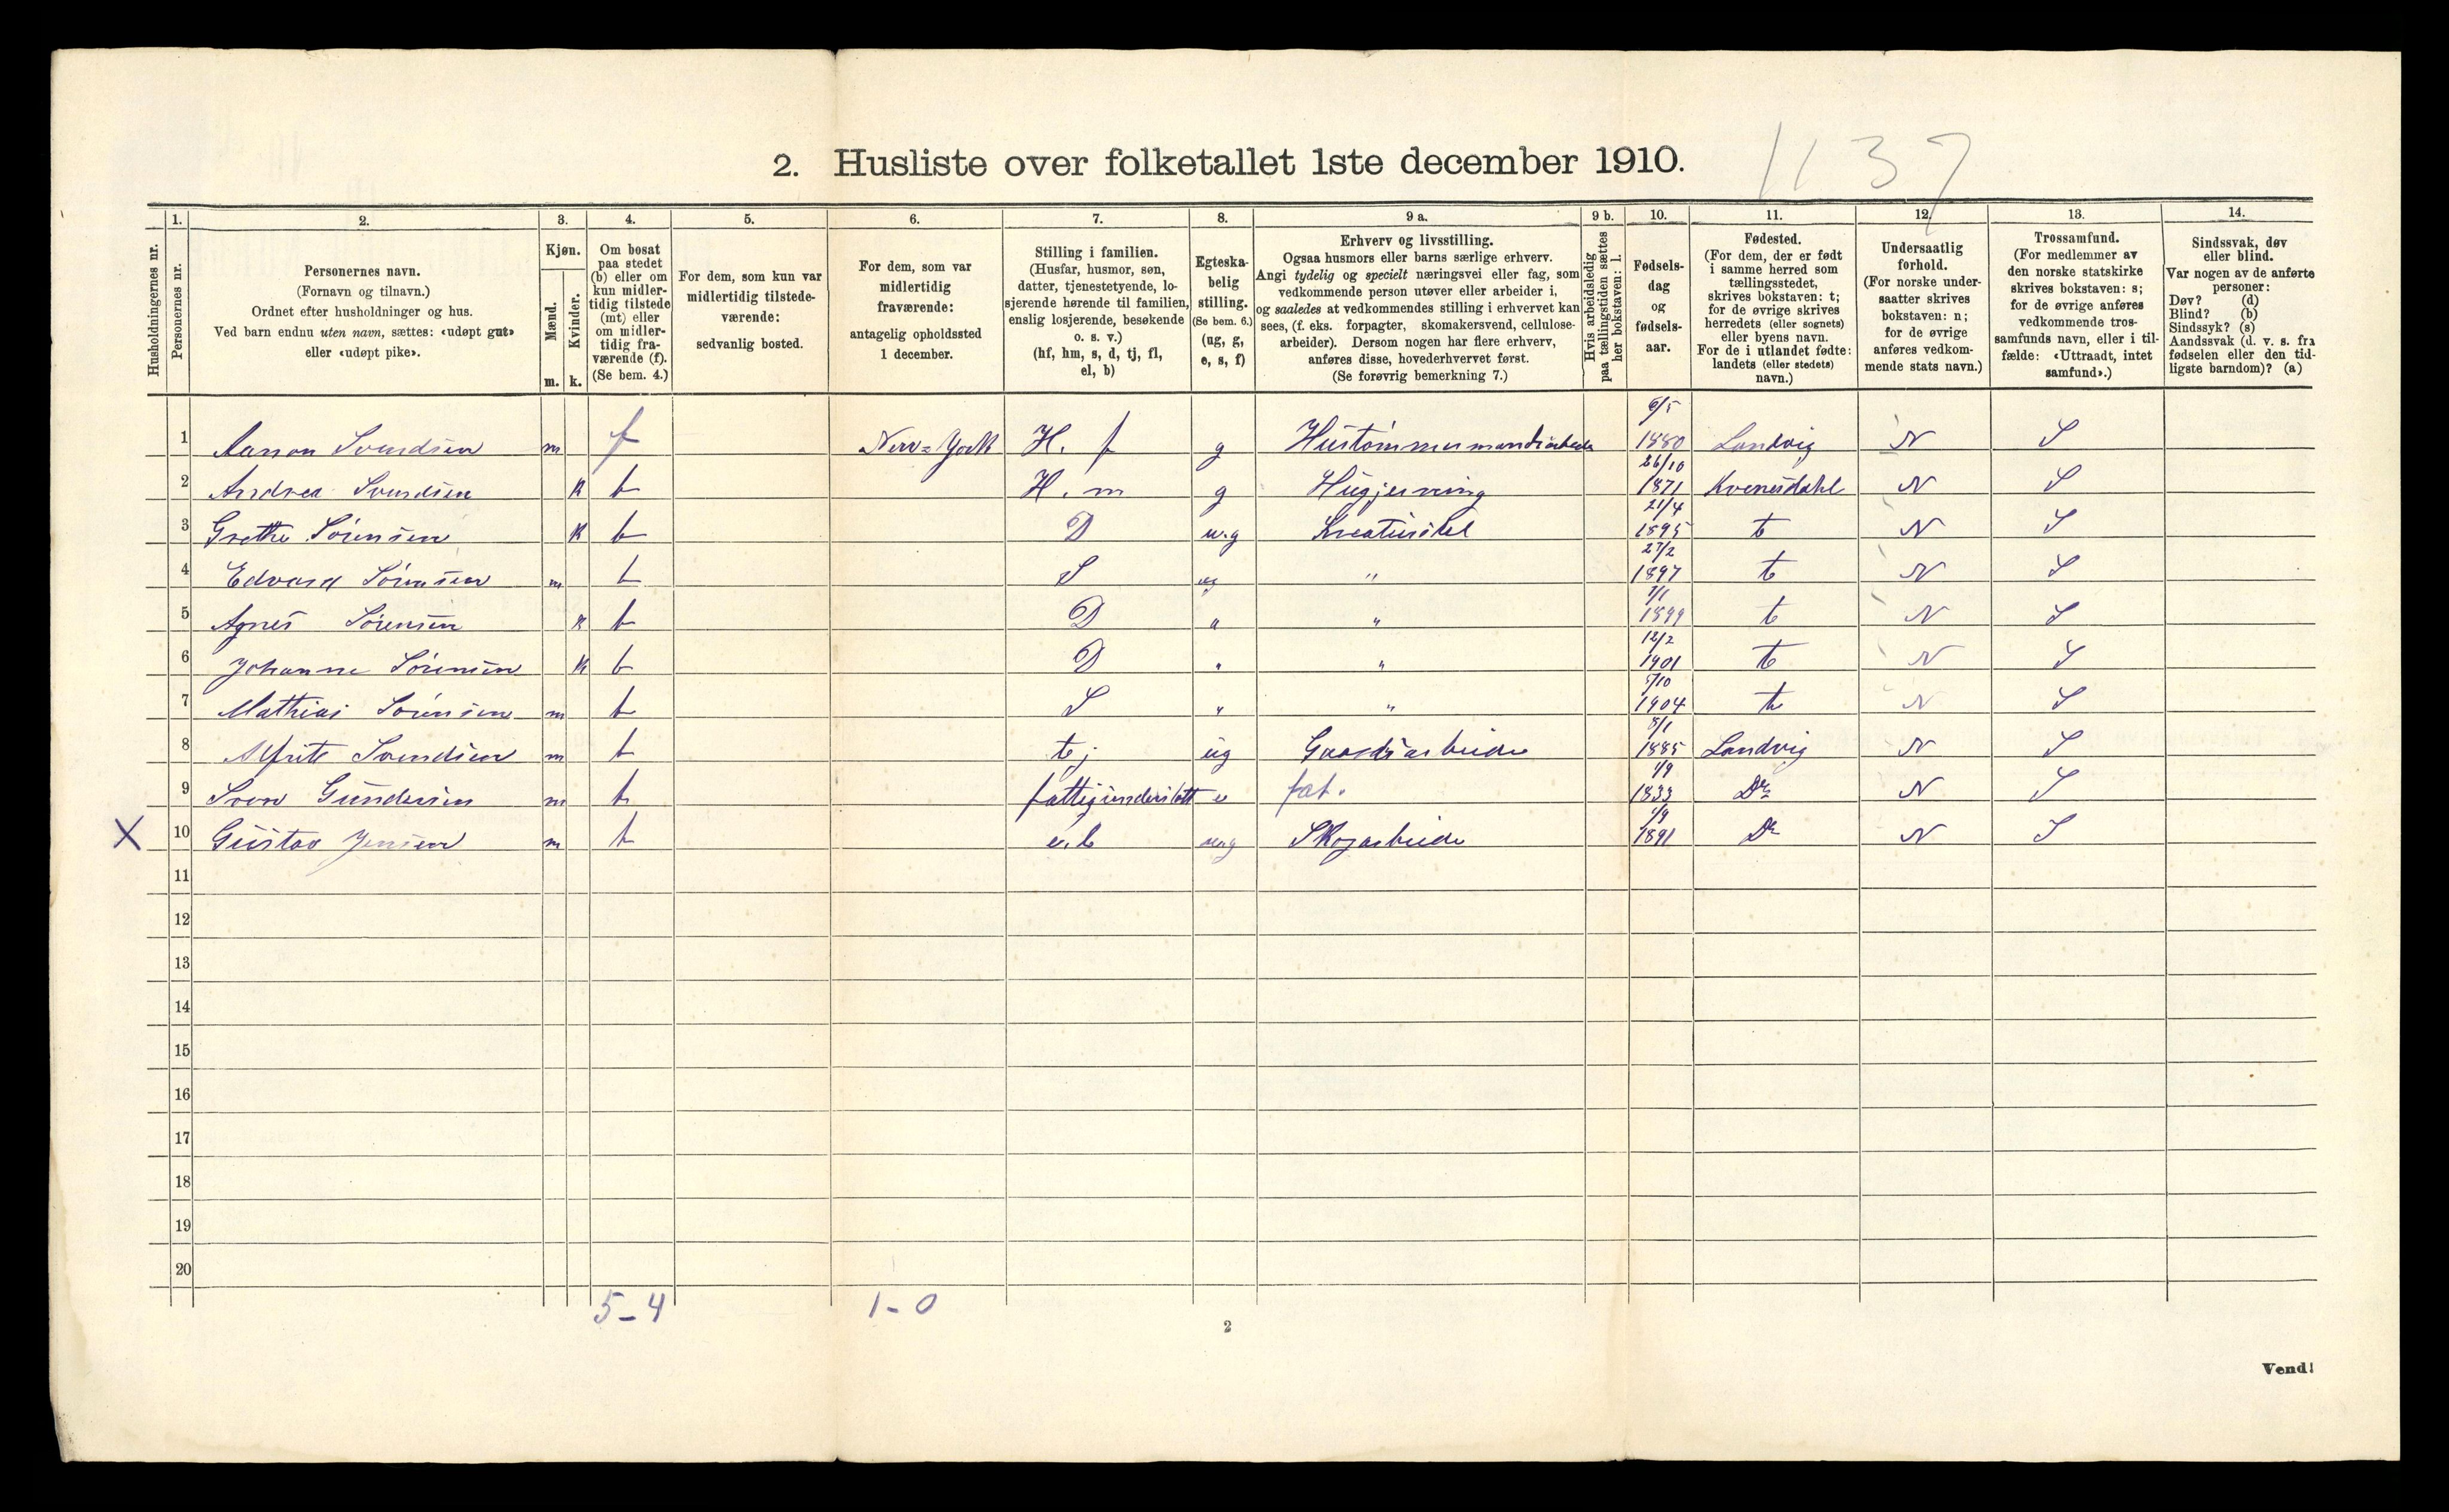 1137
2. Husliste over folketallet 1ste december 1910.
Husholdningernes nr.
1. Personernes nr.
2. Personernes navn. (Fornavn og tilnavn.) Ordnet efter husholdninger og hus. Ved barn endnu uten navn, sættes: «udøpt gut» eller «udøpt pike».
3. Kjøn. Mænd. m. Kvinder. k.
4. Om bosat paa stedet (b) eller om kun midlertidig tilstede (mt) eller om midlertidig fraværende (f). (Se bem. 4.)
5. For dem, som kun var midlertidig tilstedeværende: sedvanlig bosted.
6. For dem, som var midlertidig fraværende: antagelig opholdssted 1 december.
7. Stilling i familien. (Husfar, husmor, søn, datter, tjenestetyende, losjerende hørende til familien, enslig losjerende, besøkende o. s. v.) (hf, hm, s, d, tj, fl, el, b)
8. Egteskabelig stilling. (Se bem. 6.) (ug, g, e, s, f)
9 a. Erhverv og livsstilling. Ogsaa husmors eller barns særlige erhverv. Angi tydelig og specielt næringsvei eller fag, som vedkommende person utøver eller arbeider i, og saaledes at vedkommendes stilling i erhvervet kan sees, (f. eks. forpagter, skomakersvend, cellulosearbeider). Dersom nogen har flere erhverv, anføres disse, hovederhvervet først. (Se forøvrig bemerkning 7.)
9 b. Hvis arbeidsledig paa tællingstiden sættes her bokstaven: l.
10. Fødselsdag og fødselsaar.
11. Fødested. (For dem, der er født i samme herred som tællingsstedet, skrives bokstaven: t; for de øvrige skrives herredets (eller sognets) eller byens navn. For de i utlandet fødte: landets (eller stedets) navn.)
12. Undersaatlig forhold. (For norske undersaatter skrives bokstaven: n; for de øvrige anføres vedkommende stats navn.)
13. Trossamfund. (For medlemmer av den norske statskirke skrives bokstaven: s; for de øvrige anføres vedkommende trossamfunds navn, eller i tilfælde: «Uttraadt, intet samfund».)
14. Sindssvak, døv eller blind. Var nogen av de anførte personer: Døv? (d) Blind? (b) Sindssyk? (s) Aandssvak (d. v. s. fra fødselen eller den tidligste barndom)? (a)
1 Aanon Svendsen m f New=York H. f g Hustømmermandsarbeide 6/5 1880 Landvig N S
2 Andrea Svendsen k b H. m g Husgjerning 26/10 1871 Kvenesdahl N S
3 Grethe Sørensen k b D u.g Kreaturstel 21/4 1895 t N S
4 Edvard Sørensen m b S ug " 27/2 1897 t N S
5 Agnes Sørensen k b D " " 7/1 1899 t N S
6 Johanne Sørensen k b D " " 12/2 1901 t N S
7 Mathias Sørensen m b S " " 5/10 1904 t N S
8 Alfrit Svendsen m b tj ug Gaardsarbeide 8/1 1885 Landvig N S
9 Sven Gundersen m b fattigunderstøtt e fat. 1/9 1833 Do N S
X 10 Gustav Jensen m b e.l ug Skogarbeide 1/9 1891 Do N S
11
12
13
14
15
16
17
18
19
20
5-4 1-0
2
Vend!